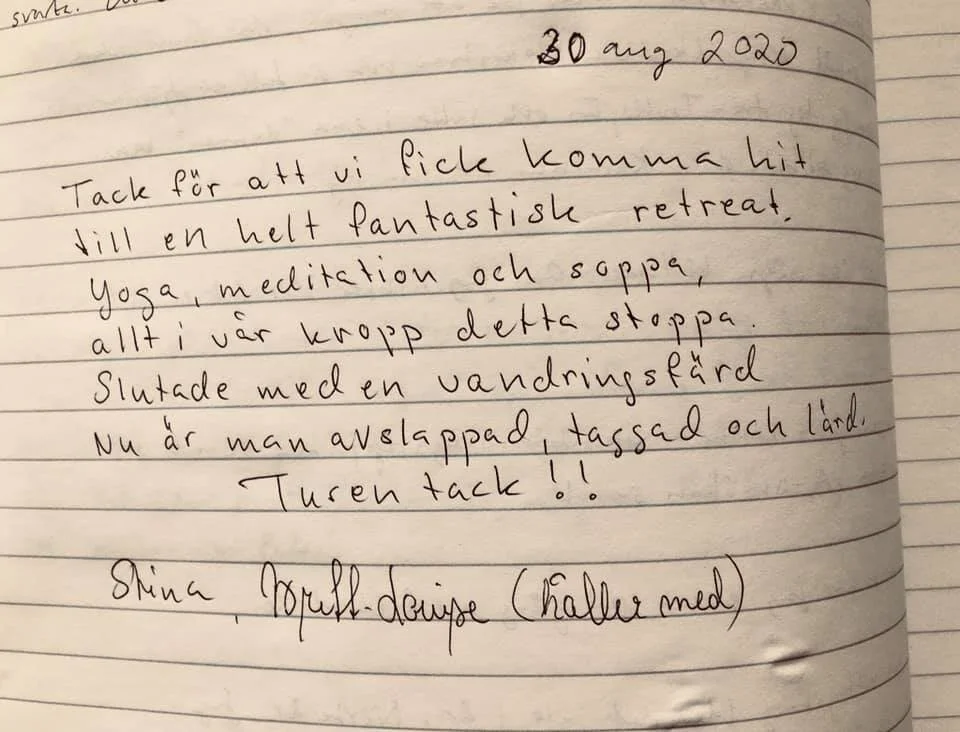 svarta.
30 aug 2020
Tack för att vi fick komma hit
till en helt fantastisk retreat.
Yoga, meditation och soppa,
allt i vår kropp detta stoppa.
Slutade med en vandringsfärd
Nu är man avslappad, taggad och lärd.
Turen tack !!
Stina, Britt-Louise (håller med)